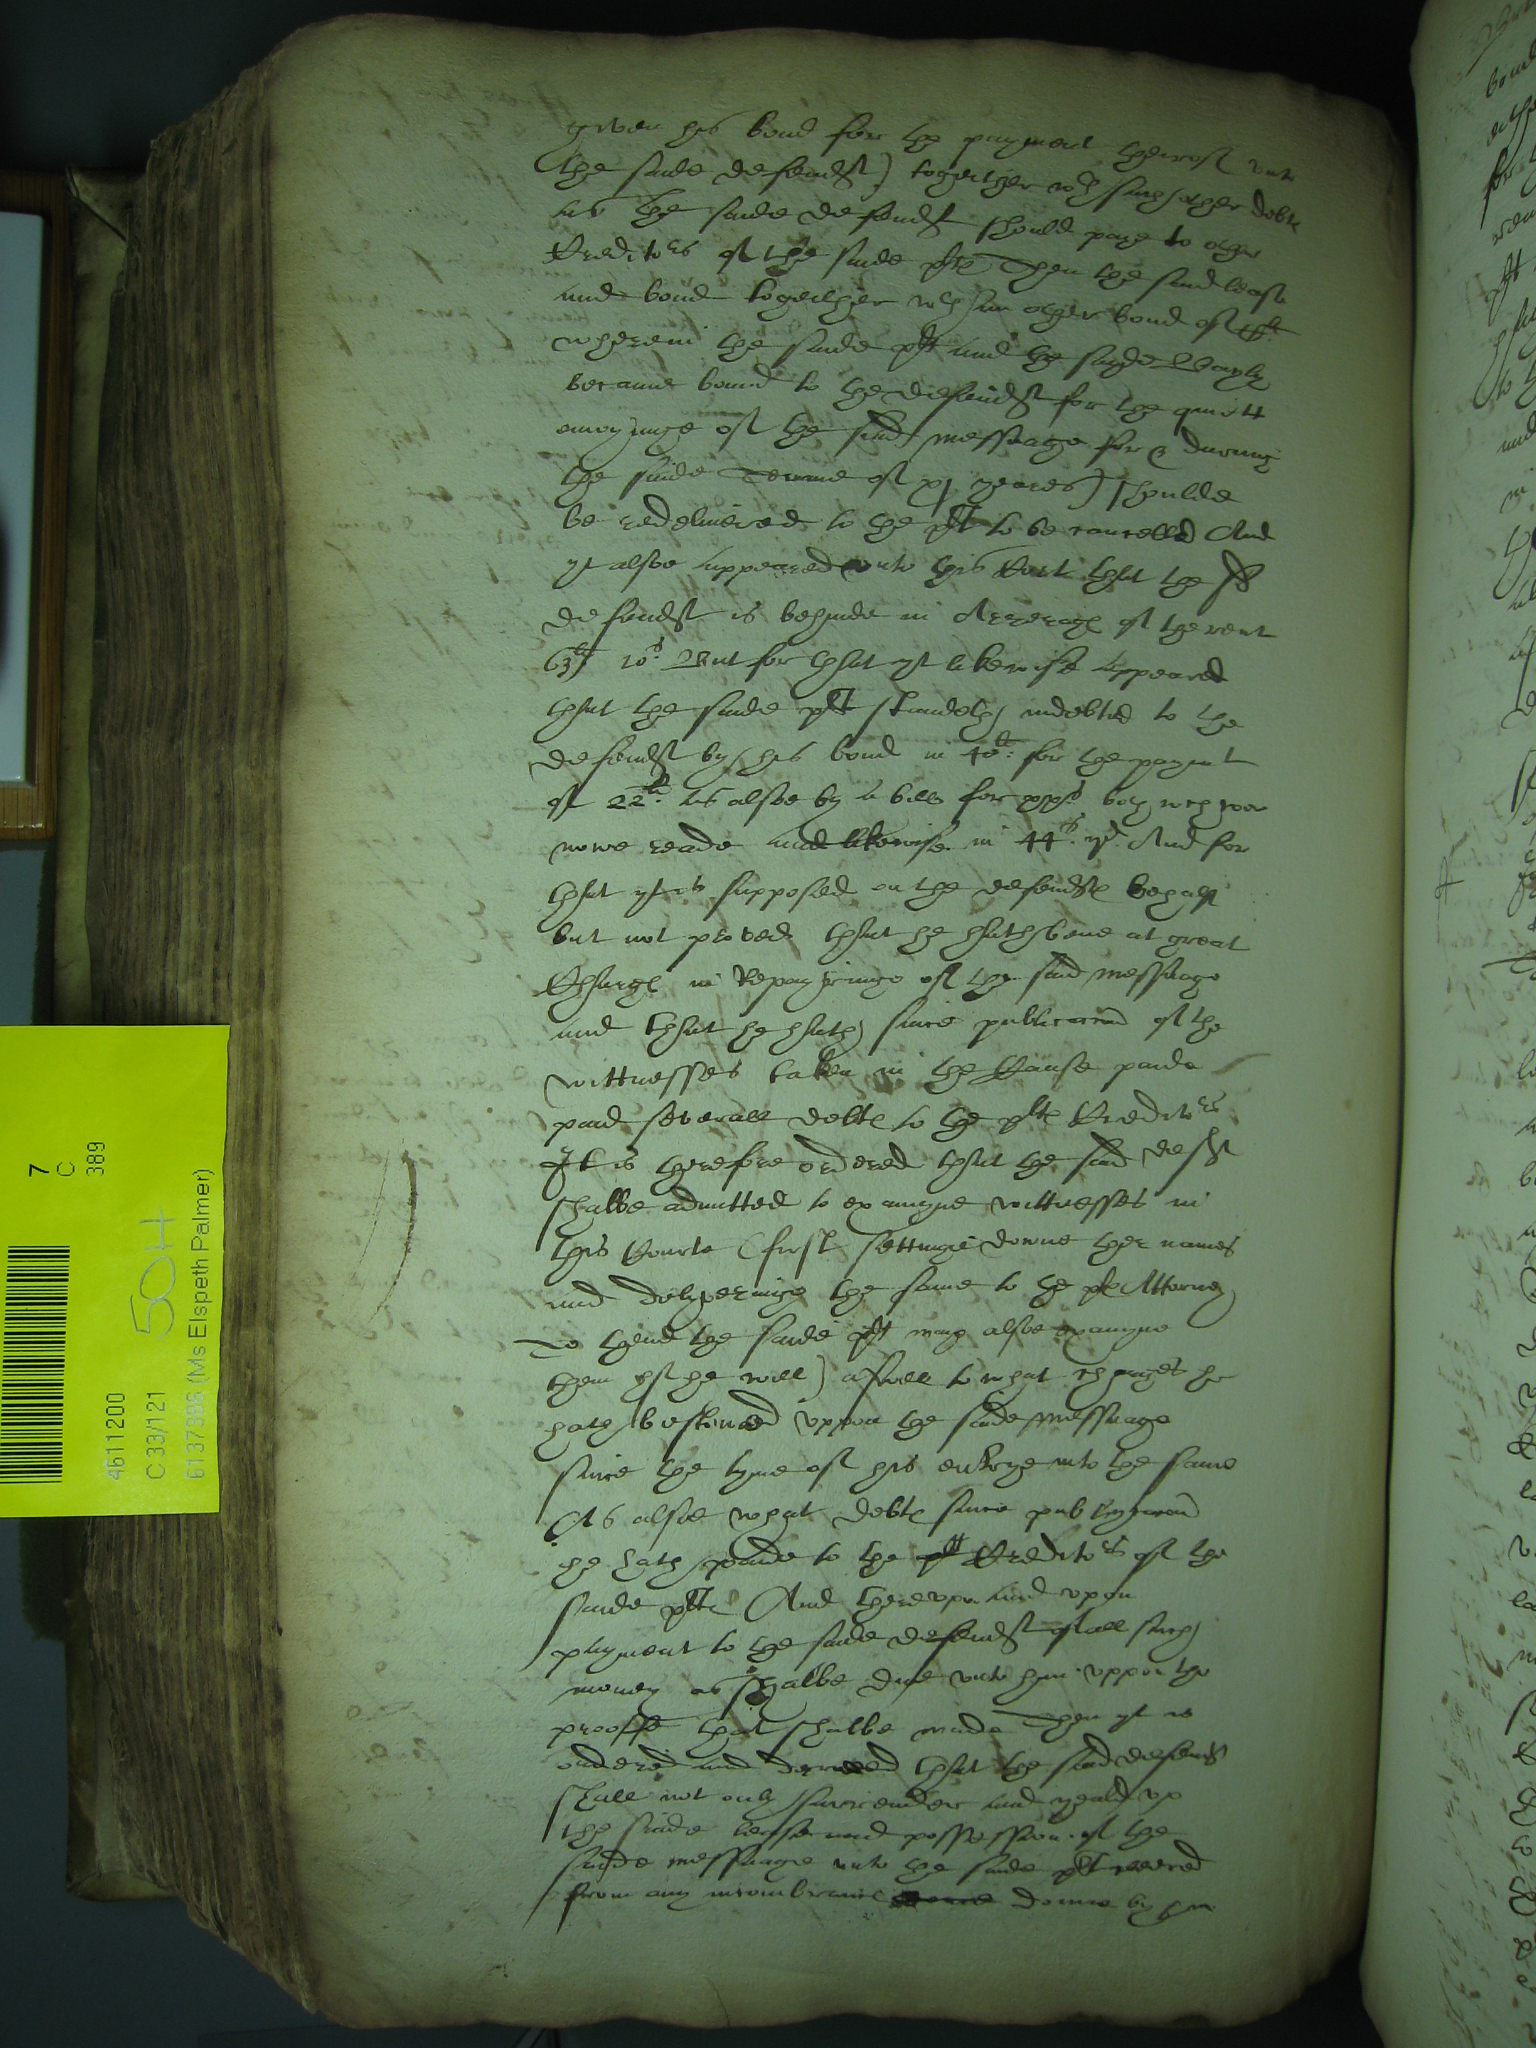 given his bond for the payment therof unto
the saide defendt) together wth such other debtℯ
as the saide defendt should paye to other
Creditors of the saide pltℯ Then the said lease
and bond together wth an other bond of
wherein the saide plt and the said
became bound to the defendt for the quiett
enioyinge of the said messuage for & during
the saide Terme of xj yeares) shoulde
be redelivered to the plt to be cancelled And
yt alsoe appeared unto this Cort that the sd
defendt is behinde in Arreragℯ of the rent
63li 10s But for that yt likewise appeared
that the saide plt standeth indebted to the
defendt by his bond in 40li for the paymt
of 22li as alsoe by a bill for xxs both wch were
nowe reade and likewise in 44s And for
that yt is supposed on the defendtℯ behalf
but not proved that he hath bene at great
Chargℯ in Repayringe of the said messuage
and that he hath since publicacion of the
wittnesses taken in the Cause paide
paid severall debtℯ to the pltℯ Creditors
It is therefore ordered that the said deft
shalbe admitted to examyne wittnesses in
this Courte (first settinge downe ther names
and delyveringe the same to the pltℯ Attorney
To thend the saide plt may alsoe examyne
them yf he will) aswell to what charges he
hath bestowed uppon the saide messuage
since the tyme of his entrye into the same
As alsoe what debtℯ since publicacion
he hath paide to the plt Creditors of the
saide pltℯ And thereupon and upon
payment to the saide defendt of all such
money as shalbe due unto him uppon the
prooffe that shalbe made Then yt is
ordered and decreed that the said defendt
shall not only surrender and yeald up
the saide lease and possession of the
saide messuage unto the saide plt cleered
from any incombrance donne by him